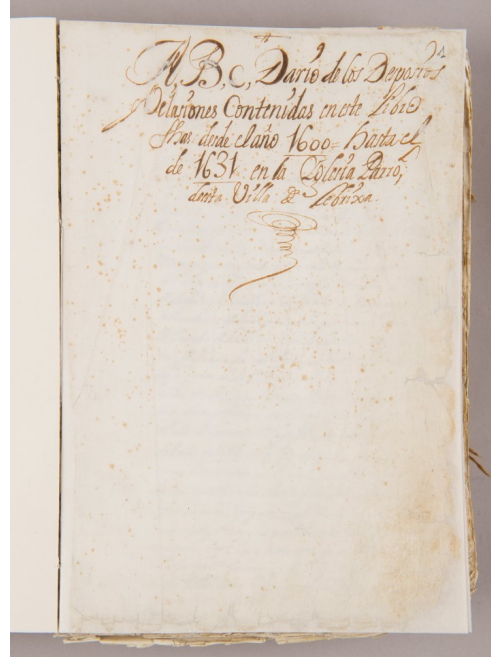 1
A, B, C, Dario de los Desposorios
Velasiones Contenidas en este Libro
fhas desde el año 1600 = hasta el
de 1631 en la Yglesia Parro,
desta Villa de Lebrixa.